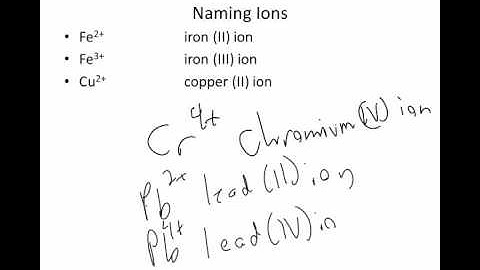 Naming Ions
• Fe²⁺ iron (II) ion
• Fe³⁺ iron (III) ion
• Cu²⁺ copper (II) ion
Cr⁴⁺ Chromium (IV) ion
Pb²⁺ lead (II) ion
Pb⁴⁺ lead (IV) in